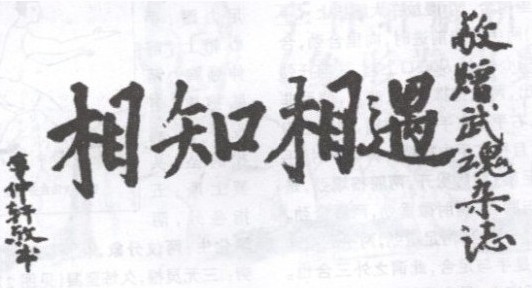 敬贈武魂杂誌
相知相遇
李仲軒敬书